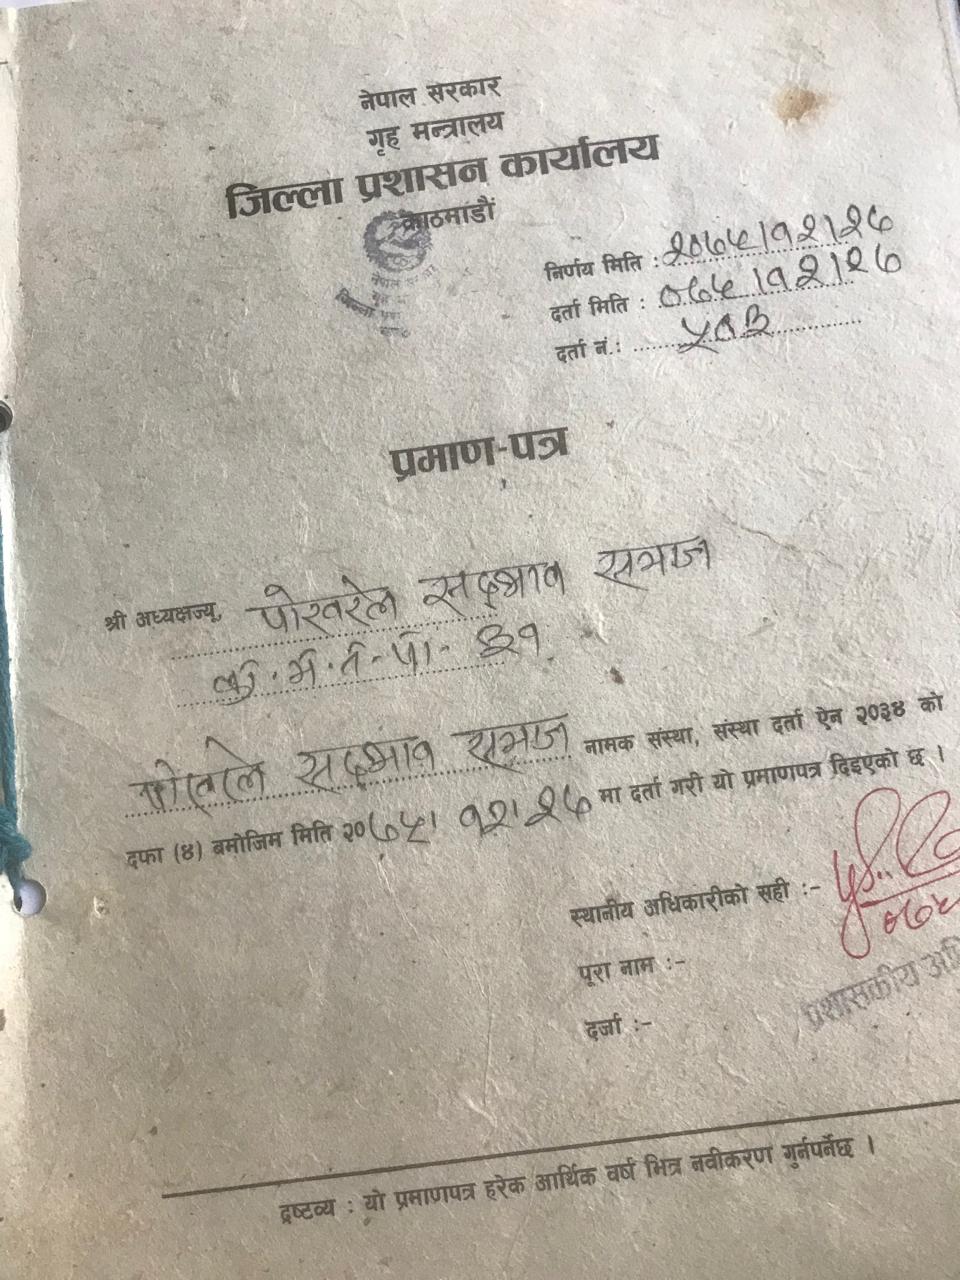 नेपाल सरकार
गृह मन्त्रालय
जिल्ला प्रशासन कार्यालय
काठमाडौं
निर्णय मिति : २०७५।१२।२७
दर्ता मिति : ०७५।१२।२७
दर्ता नं.:
प्रमाण-पत्र
श्री अध्यक्षज्यू, पोखरेल सद्भाव समाज
का.म.न.पा. ३१
पोखरेल सद्भाव समाज नामक संस्था, संस्था दर्ता ऐन २०३४ को
दफा (४) बमोजिम मिति २०७५।१२।२७ मा दर्ता गरी यो प्रमाणपत्र दिइएको छ ।
स्थानीय अधिकारीको सही :-
पूरा नाम :-
प्रशासकीय
दर्जा :-
द्रष्टव्य : यो प्रमाणपत्र हरेक आर्थिक वर्ष भित्र नवीकरण गुर्नपर्नेछ ।